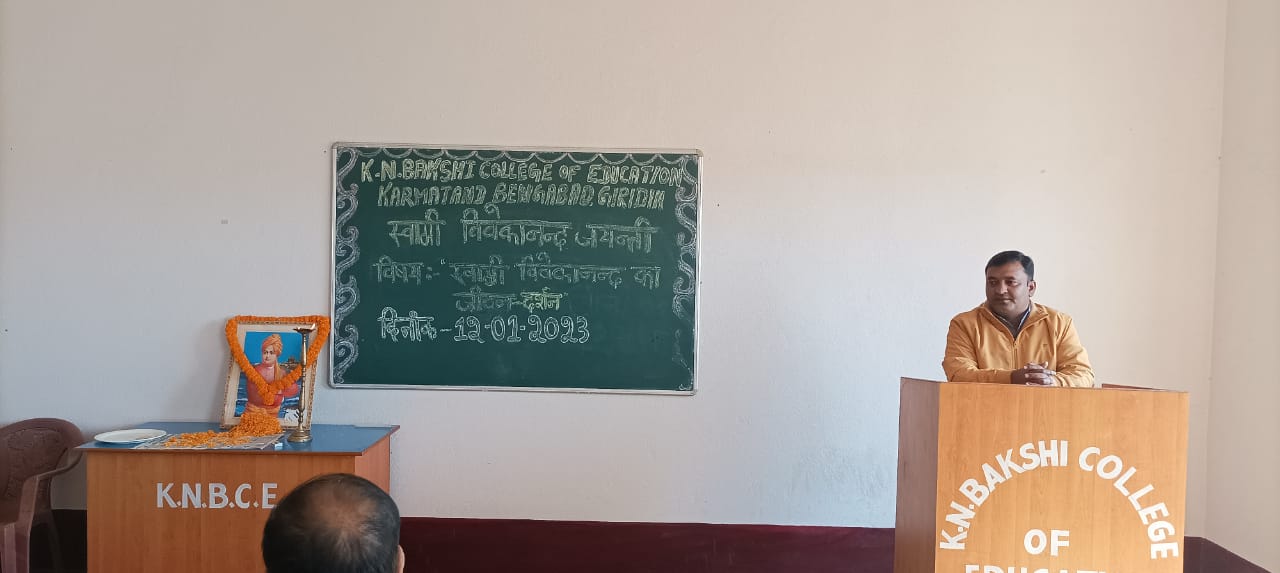 K.N.BAKSHI COLLEGE OF EDUCATION
KARMATAND, BENGABAD, GIRIDIH
स्वामी विवेकानन्द जयन्ती
विषय:- "स्वामी विवेकानन्द" का
जीवन-दर्शन"
दिनांक - 12-01-2023
K.N.B.C.E
K.N.BAKSHI COLLEGE
OF